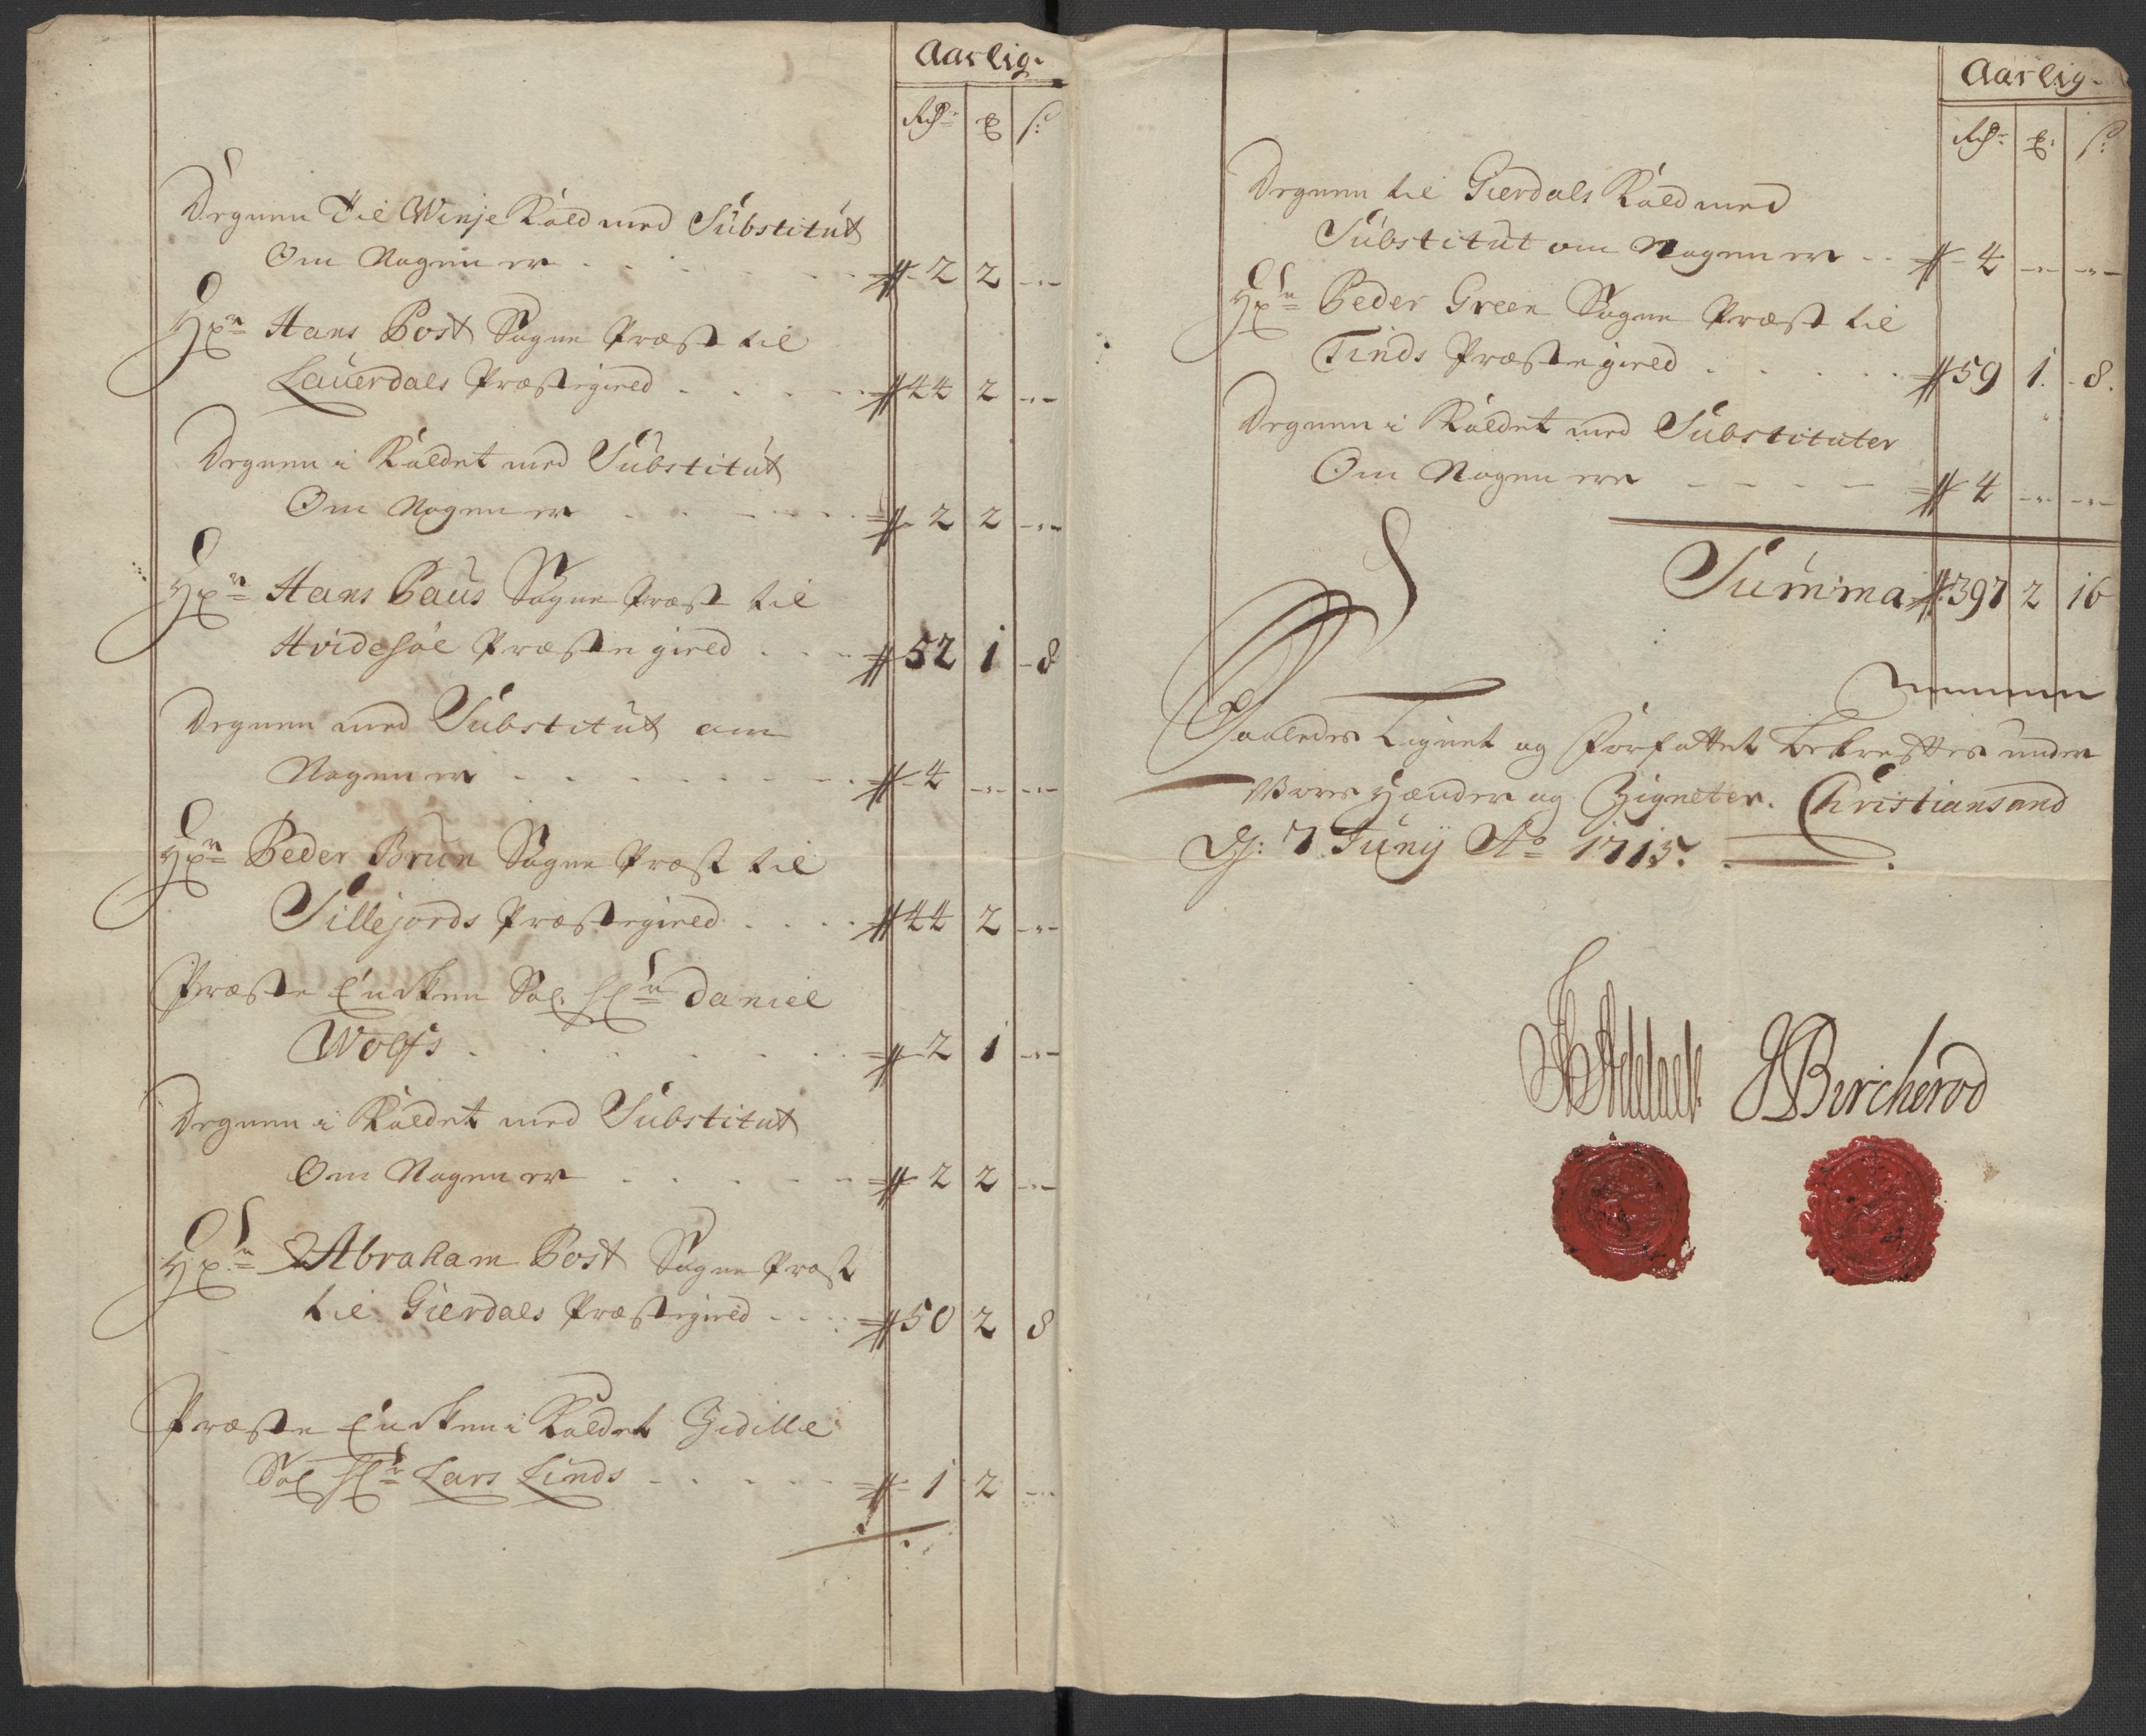 Aarlig.
Rdr ȝ s:
Degnen Til Winje Kald med Substitut
Om Nogen er . . . . . # 2 2 -..-
Hr Hans Post Sogne Præst til
Lauerdals Præstegield . . . . # 44 2 -..-
Degnen i Kaldet med Substitut
Om Nogen er . . . . . # 2 2 -..-
Hr Hans Paus Sogne Præst til
Hvidesøe Præstegield . . . # 52 1 - 8
Degnen med Substitut om
Nogen er . . . . . . . # 4 -..- -..-
Hr Peder Brun Sogne Præst til
Sillejords Præstegield . . . . # 44 2 -..-
Præste Enchen Sal. Hr Daniel
Wolfs . . . . . . . # 2 1 -..-
Degnen i Kaldet med Substitut
Om Nogen er . . . . . # 2 2 -..-
Hr Abraham Post Sogne Præst
til Gierdals Præstegield . . . # 50 2 8
Præste Enchen i Kaldet Zidille
Sal Hr Lars Linds . . . . . # 1 2 -..-
Aarlig.
Rdr ȝ: s:
Degnen til Gierdals Kald med
Substitut om Nogen er . . # 4 -..- -..-
Hr Peder Green Sogne Præst til
Tinds Præstegield . . . . . # 59 1. - 8.
Degnen i Kaldet med Substituter
Om Nogen ere - - - - # 4 -..- -..-
Summa # 397 2 16
Saaledes Lignet og Forfattet bekreftes under
Vores Hænder og Zigneter. Christiansand
D: 7 Junij Ao 1715.
Adelaer
JBircherod